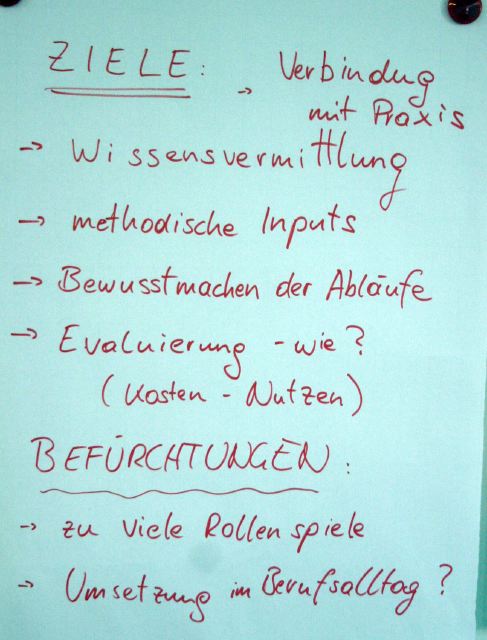 ZIELE:
→ Verbindung
mit Praxis
→ Wissensvermittlung
→ methodische Inputs
→ Bewusstmachen der Abläufe
→ Evaluierung - wie?
(Kosten - Nutzen)
BEFÜRCHTUNGEN:
→ zu viele Rollenspiele
→ Umsetzung im Berufsalltag?